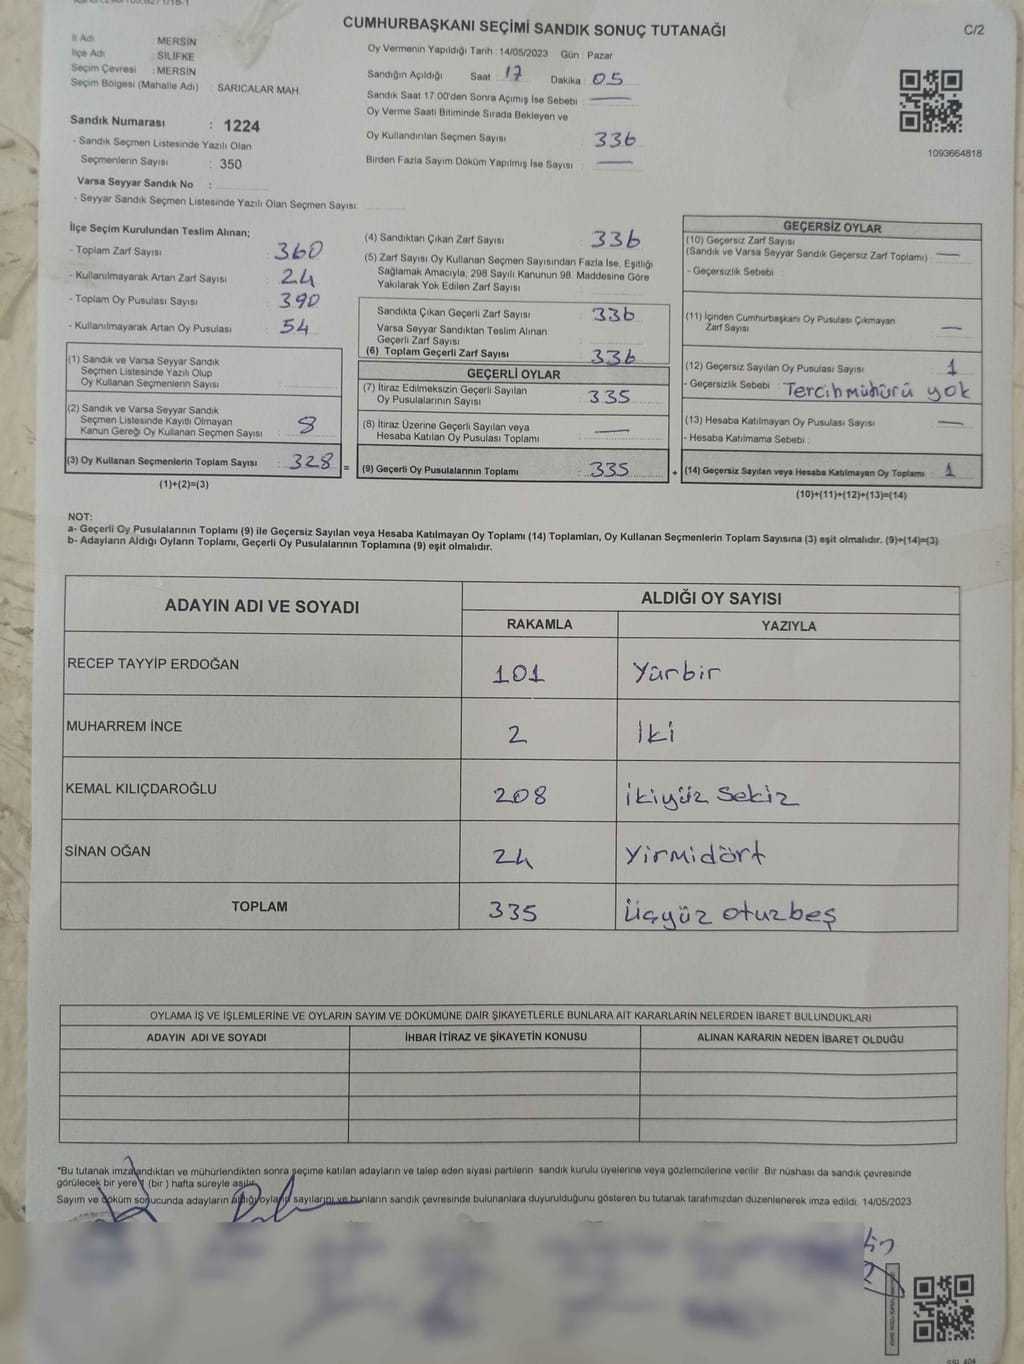 CUMHURBAŞKANI SEÇİMİ SANDIK SONUÇ TUTANAĞI
C/2
İl Adı MERSİN
İlçe Adı SİLİFKE
Seçim Çevresi : MERSİN
Seçim Bölgesi (Mahalle Adı) : SARICALAR MAH.
Oy Vermenin Yapıldığı Tarih : 14/05/2023 Gün : Pazar
Sandığın Açıldığı Saat 17 Dakika 05
Sandık Saat 17:00'den Sonra Açımış İse Sebebi : —
Oy Verme Saati Bitiminde Sırada Bekleyen ve
Oy Kullandırılan Seçmen Sayısı : 336
Birden Fazla Sayım Döküm Yapılmış İse Sayısı : —
1093664818
Sandık Numarası : 1224
- Sandık Seçmen Listesinde Yazılı Olan
Seçmenlerin Sayısı : 350
Varsa Seyyar Sandık No :
- Seyyar Sandık Seçmen Listesinde Yazılı Olan Seçmen Sayısı:
İlçe Seçim Kurulundan Teslim Alınan;
- Toplam Zarf Sayısı : 360
- Kullanılmayarak Artan Zarf Sayısı : 24
- Toplam Oy Pusulası Sayısı : 390
- Kullanılmayarak Artan Oy Pusulası : 54
(1) Sandık ve Varsa Seyyar Sandık
Seçmen Listesinde Yazılı Olup
Oy Kullanan Seçmenlerin Sayısı :
(2) Sandık ve Varsa Seyyar Sandık
Seçmen Listesinde Kayıtlı Olmayan
Kanun Gereği Oy Kullanan Seçmen Sayısı : 8
(3) Oy Kullanan Seçmenlerin Toplam Sayısı : 328 =
(1)+(2)=(3)
(4) Sandıktan Çıkan Zarf Sayısı : 336
(5) Zarf Sayısı Oy Kullanan Seçmen Sayısından Fazla İse, Eşitliği
Sağlamak Amacıyla, 298 Sayılı Kanunun 98. Maddesine Göre
Yakılarak Yok Edilen Zarf Sayısı :
Sandıkta Çıkan Geçerli Zarf Sayısı : 336
Varsa Seyyar Sandıktan Teslim Alınan
Geçerli Zarf Sayısı :
(6) Toplam Geçerli Zarf Sayısı : 336
GEÇERLİ OYLAR
(7) İtiraz Edilmeksizin Geçerli Sayılan
Oy Pusulalarının Sayısı : 335
(8) İtiraz Üzerine Geçerli Sayılan veya
Hesaba Katılan Oy Pusulası Toplamı : —
(9) Geçerli Oy Pusulalarının Toplamı : 335 +
GEÇERSİZ OYLAR
(10) Geçersiz Zarf Sayısı
(Sandık ve Varsa Seyyar Sandık Geçersiz Zarf Toplamı) : —
- Geçersizlik Sebebi :
(11) İçinden Cumhurbaşkanı Oy Pusulası Çıkmayan
Zarf Sayısı : —
(12) Geçersiz Sayılan Oy Pusulası Sayısı : 1
- Geçersizlik Sebebi : Tercih mühürü yok
(13) Hesaba Katılmayan Oy Pusulası Sayısı : —
- Hesaba Katılmama Sebebi :
(14) Geçersiz Sayılan veya Hesaba Katılmayan Oy Toplamı : 1
(10)+(11)+(12)+(13)=(14)
NOT:
a- Geçerli Oy Pusulalarının Toplamı (9) ile Geçersiz Sayılan veya Hesaba Katılmayan Oy Toplamı (14) Toplamları, Oy Kullanan Seçmenlerin Toplam Sayısına (3) eşit olmalıdır. (9)+(14)=(3)
b- Adayların Aldığı Oyların Toplamı, Geçerli Oy Pusulalarının Toplamına (9) eşit olmalıdır.
ADAYIN ADI VE SOYADI ALDIĞI OY SAYISI
RAKAMLA YAZIYLA
RECEP TAYYİP ERDOĞAN 101 Yüzbir
MUHARREM İNCE 2 İki
KEMAL KILIÇDAROĞLU 208 ikiyüz sekiz
SİNAN OĞAN 24 Yirmidört
TOPLAM 335 Üçyüz otuzbeş
OYLAMA İŞ VE İŞLEMLERİNE VE OYLARIN SAYIM VE DÖKÜMÜNE DAİR ŞİKAYETLERLE BUNLARA AİT KARARLARIN NELERDEN İBARET BULUNDUKLARI
ADAYIN ADI VE SOYADI İHBAR İTİRAZ VE ŞİKAYETİN KONUSU ALINAN KARARIN NEDEN İBARET OLDUĞU
*Bu tutanak imzalandıktan ve mühürlendikten sonra seçime katılan adayların ve talep eden siyasi partilerin sandık kurulu üyelerine veya gözlemcilerine verilir. Bir nüshası da sandık çevresinde
görülecek bir yere 1 (bir) hafta süreyle asılır.
Sayım ve döküm sonucunda adayların aldığı oyların sayılarını ve bunların sandık çevresinde bulunanlara duyurulduğunu gösteren bu tutanak tarafımızdan düzenlenerek imza edildi. 14/05/2023